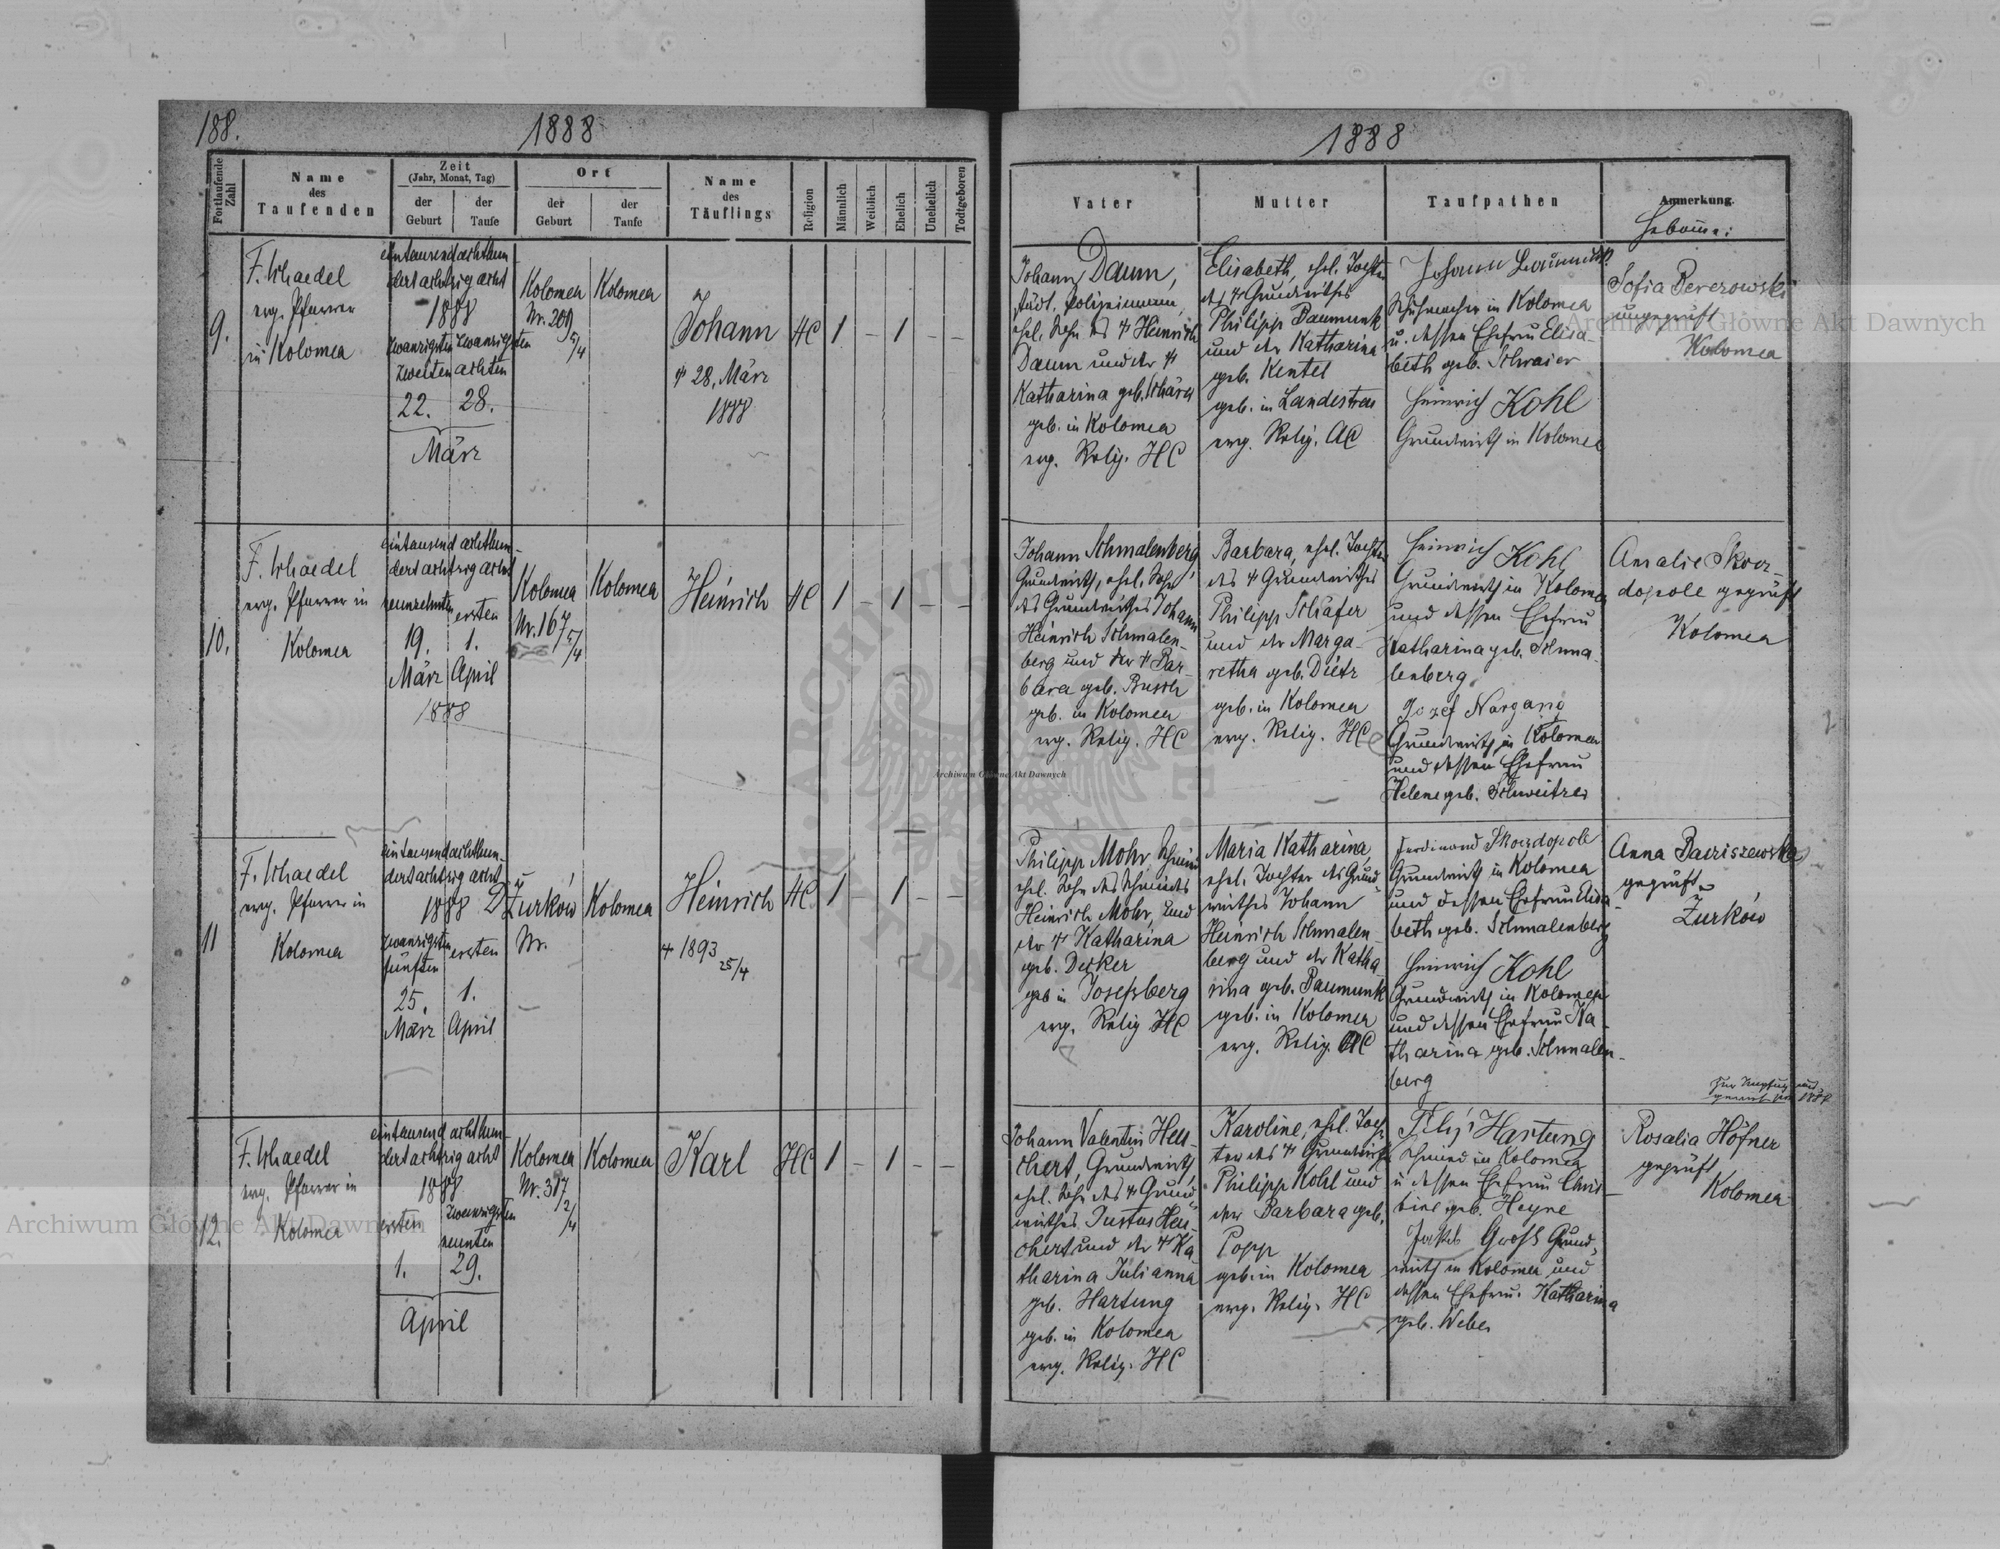 188.
1888
Fortlaufende Zahl
Name des Taufenden
Zeit
(Jahr, Monat, Tag)
der Geburt
der Taufe
Ort
der Geburt
der Taufe
Name des Täuflings
Religion
Männlich
Weiblich
Ehelich
Unehelich
Todtgeboren
9.
F. Schaedel
evg. Pfarrer
in Kolomea
eintausendachthun-
dertachtzigacht
1888
zwanzigsten zwanzigsten
zweiten achten
22. 28.
März
Kolomea
Nr. 209
5/4
Kolomea
Johann
† 28. März
1888
HC
1 – 1 – –
10.
F. Schaedel
evg. Pfarrer in
Kolomea
eintausend achthun-
dertachtzigacht
neunzehnten
ersten
19. 1.
März April
1888
Kolomea
Nr. 167
5/4
Kolomea
Heinrich
HC
1 – 1 – –
11
F. Schaedel
evg. Pfarrer in
Kolomea
eintausendachthun-
dertachtzigacht
1888
zwanzigsten ersten
fünften
25. 1.
März April
Żurków
Nr.
Kolomea
Heinrich
† 1893 25/4
HC
1 – 1 – –
12.
F. Schaedel
evg. Pfarrer in
Kolomea
eintausend achthun-
dertachtzig acht
1888
ersten zwanzigsten
neunten
1. 29.
April
Kolomea
Nr. 317
2/4
Kolomea
Karl
HC
1 – 1 – –
1888
Vater
Mutter
Taufpathen
Anmerkung
Hebamme:
Johann Daum,
städt. Polizeimann,
ehel. Sohn des † Heinrich
Daum und der †
Katharina geb. Schäfer
geb. in Kolomea
evg. Relig. HC
Elisabeth, ehel. Tochter
des † Grundwirthes
Philipp Baumunk
und der Katharina
geb. Kentel
geb. in Landestreu
evg. Relig. AC
Johann Baumunk
Schuhmacher in Kolomea
u. dessen Ehefrau Elisa-
beth geb. Schraier
Heinrich Kohl
Grundwirth in Kolomea
Sofia Berezowski
ungeprüft
Kolomea
Johann Schmalenberg,
Grundwirth, ehel. Sohn
des Grundwirthes Johann
Heinrich Schmalen-
berg und der † Bar-
bara geb. Busch
geb. in Kolomea
evg. Relig. HC
Barbara, ehel. Tochter
des † Grundwirthes
Philipp Schäfer
und der Marga-
retha geb. Dietz
geb. in Kolomea
evg. Relig. HC
Heinrich Kohl
Grundwirth in Kolomea
und dessen Ehefrau
Katharina geb. Schma-
lenberg
Jozef Nargang
Grundwirth in Kolomea
und dessen Ehefrau
Helene geb. Schweitzer
Amalie Skoz-
dopole geprüft
Kolomea
Philipp Mohr, Schmied
ehel. Sohn des Schmiedes
Heinrich Mohr, und
der † Katharina
geb. Decker
geb. in Josefsberg
evg. Relig HC
Maria Katharina,
ehel. Tochter des Grund-
wirthes Johann
Heinrich Schmalen-
berg und der Katha-
rina geb. Baumunk
geb. in Kolomea
evg. Relig. AC
Ferdinand Skozdopole
Grundwirth in Kolomea
und dessen Ehefrau Elisa-
beth geb. Schmalenberg
Heinrich Kohl
Grundwirth in Kolomea
und dessen Ehefrau Ka-
tharina geb. Schmalen-
berg
Anna Bazriszewska
geprüft
Żurków
Johann Valentin Heu-
chert, Grundwirth,
ehel. Sohn des † Grund-
wirthes Justus Heu-
chert und der † Ka
tharina Julianna
geb. Hartung
geb. in Kolomea
evg. Relig. HC
Karoline, ehel. Toch-
ter des † Grundwirths
Philipp Kohl und
der Barbara geb.
Popp
geb. in Kolomea
evg. Relig. HC
Filip Hartung
Schmied in Kolomea
u dessen Ehefrau Chris-
tine geb. Heyne
Jakob Groß Grund-
wirth in Kolomea und
dessen Ehefrau Katharina
geb. Weber
Rosalia Höfner
geprüft
Kolomea
Archiwum Główne Akt Dawnych
Archiwum Główne Akt Dawnych
Archiwum Główne Akt Dawnych